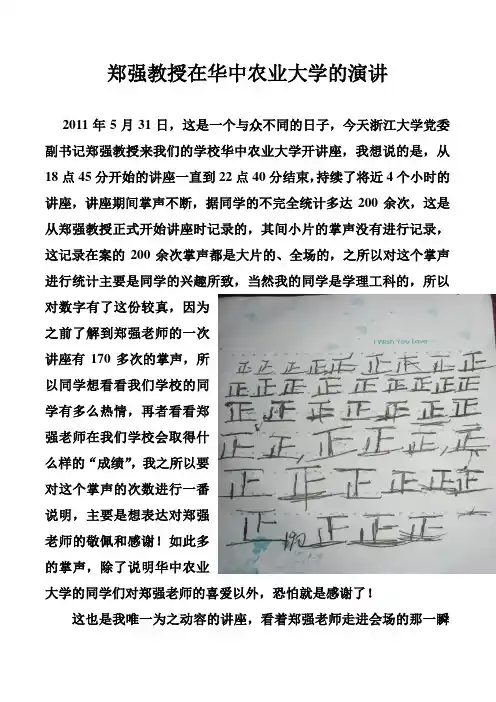 郑强教授在华中农业大学的演讲
2011 年 5 月 31 日，这是一个与众不同的日子，今天浙江大学党委
副书记郑强教授来我们的学校华中农业大学开讲座，我想说的是，从
18 点 45 分开始的讲座一直到 22 点 40 分结束，持续了将近 4 个小时的
讲座，讲座期间掌声不断，据同学的不完全统计多达 200 余次，这是
从郑强教授正式开始讲座时记录的，其间小片的掌声没有进行记录，
这记录在案的 200 余次掌声都是大片的、全场的，之所以对这个掌声
进行统计主要是同学的兴趣所致，当然我的同学是学理工科的，所以
对数字有了这份较真，因为
之前了解到郑强老师的一次
讲座有 170 多次的掌声，所
以同学想看看我们学校的同
学有多么热情，再者看看郑
强老师在我们学校会取得什
么样的“成绩”，我之所以要
对这个掌声的次数进行一番
说明，主要是想表达对郑强
老师的敬佩和感谢！如此多
的掌声，除了说明华中农业
大学的同学们对郑强老师的喜爱以外，恐怕就是感谢了！
这也是我唯一为之动容的讲座，看着郑强老师走进会场的那一瞬
I Wish You Love
正 正 正 正 正 正 正 正 正
正 正 正 正 正 正 正 正 正
正 正 正 正 正 正 正
正 正 正 正 正 正
正 正 正 正 正
正 190 正 正 正